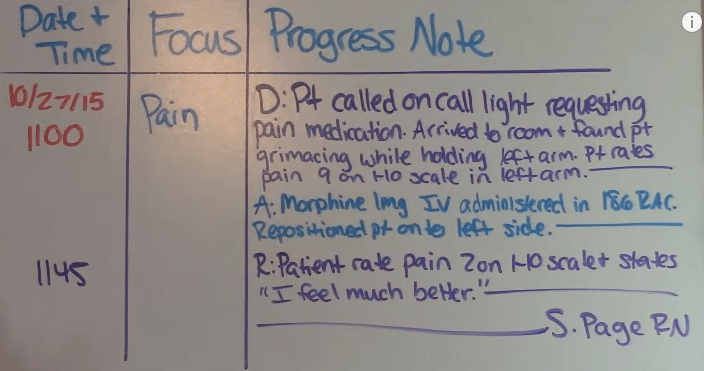 Date +
Time
Focus
Progress Note
10/27/15
1100
Pain
D: Pt called on call light requesting
pain medication. Arrived to room + found pt
grimacing while holding left arm. Pt rates
pain 9 on 1-10 scale in left arm.
A: Morphine 1mg IV administered in 18G RAC.
Repositioned pt onto left side.
1145
R: Patient rate pain 2 on 1-10 scale + states
"I feel much better."
S. Page RN